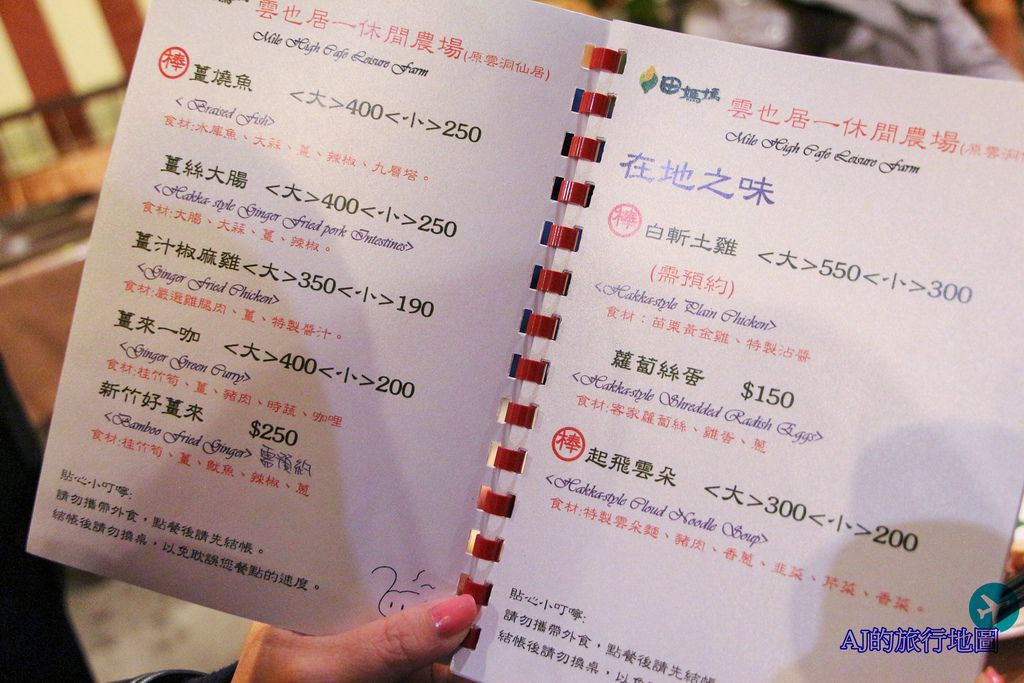 雲也居一休閒農場(原雲洞仙居)
Mile High Cafe Leisure Farm
棒 薑燒魚 <大>400<小>250
<Braised Fish>
食材:水庫魚、大蒜、薑、辣椒、九層塔。
薑絲大腸 <大>400<小>250
<Hakka-style Ginger Fried pork Intestines>
食材:大腸、大蒜、薑、辣椒。
薑汁椒麻雞<大>350<小>190
<Ginger Fried Chicken>
食材:嚴選雞腿肉、薑、特製醬汁。
薑來一咖 <大>400<小>200
<Ginger Green Curry>
食材:桂竹筍、薑、豬肉、時蔬、咖哩
新竹好薑來 $250
<Bamboo Fried Ginger> 需預約
食材:桂竹筍、薑、魷魚、辣椒、蔥
貼心小叮嚀:
請勿攜帶外食，點餐後請先結帳。
結帳後請勿換桌，以免耽誤您餐點的速度。
田媽媽 雲也居一休閒農場(原雲洞
Mile High Cafe Leisure Farm
在地之味
棒 白斬土雞 <大>550<小>300
(需預約)
<Hakka-style Plain Chicken>
食材：苗栗黃金雞、特製沾醬
蘿蔔絲蛋 $150
<Hakka-style Shredded Radish Eggs>
食材:客家蘿蔔絲、雞蛋、蔥
棒 起飛雲朵 <大>300<小>200
<Hakka-style Cloud Noodle Soup>
食材:特製雲朵麵、豬肉、香蔥、韭菜、芹菜、香菜。
貼心小叮嚀:
請勿攜帶外食，點餐後請先結帳
結帳後請勿換桌，以免
AJ的旅行地圖